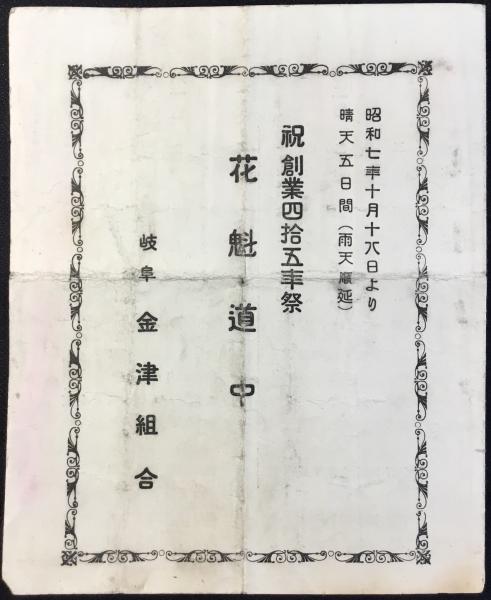 昭和七年十月十八日より
晴天五日間（雨天順延）
祝創業四拾五年祭
花魁道中
岐阜金津組合